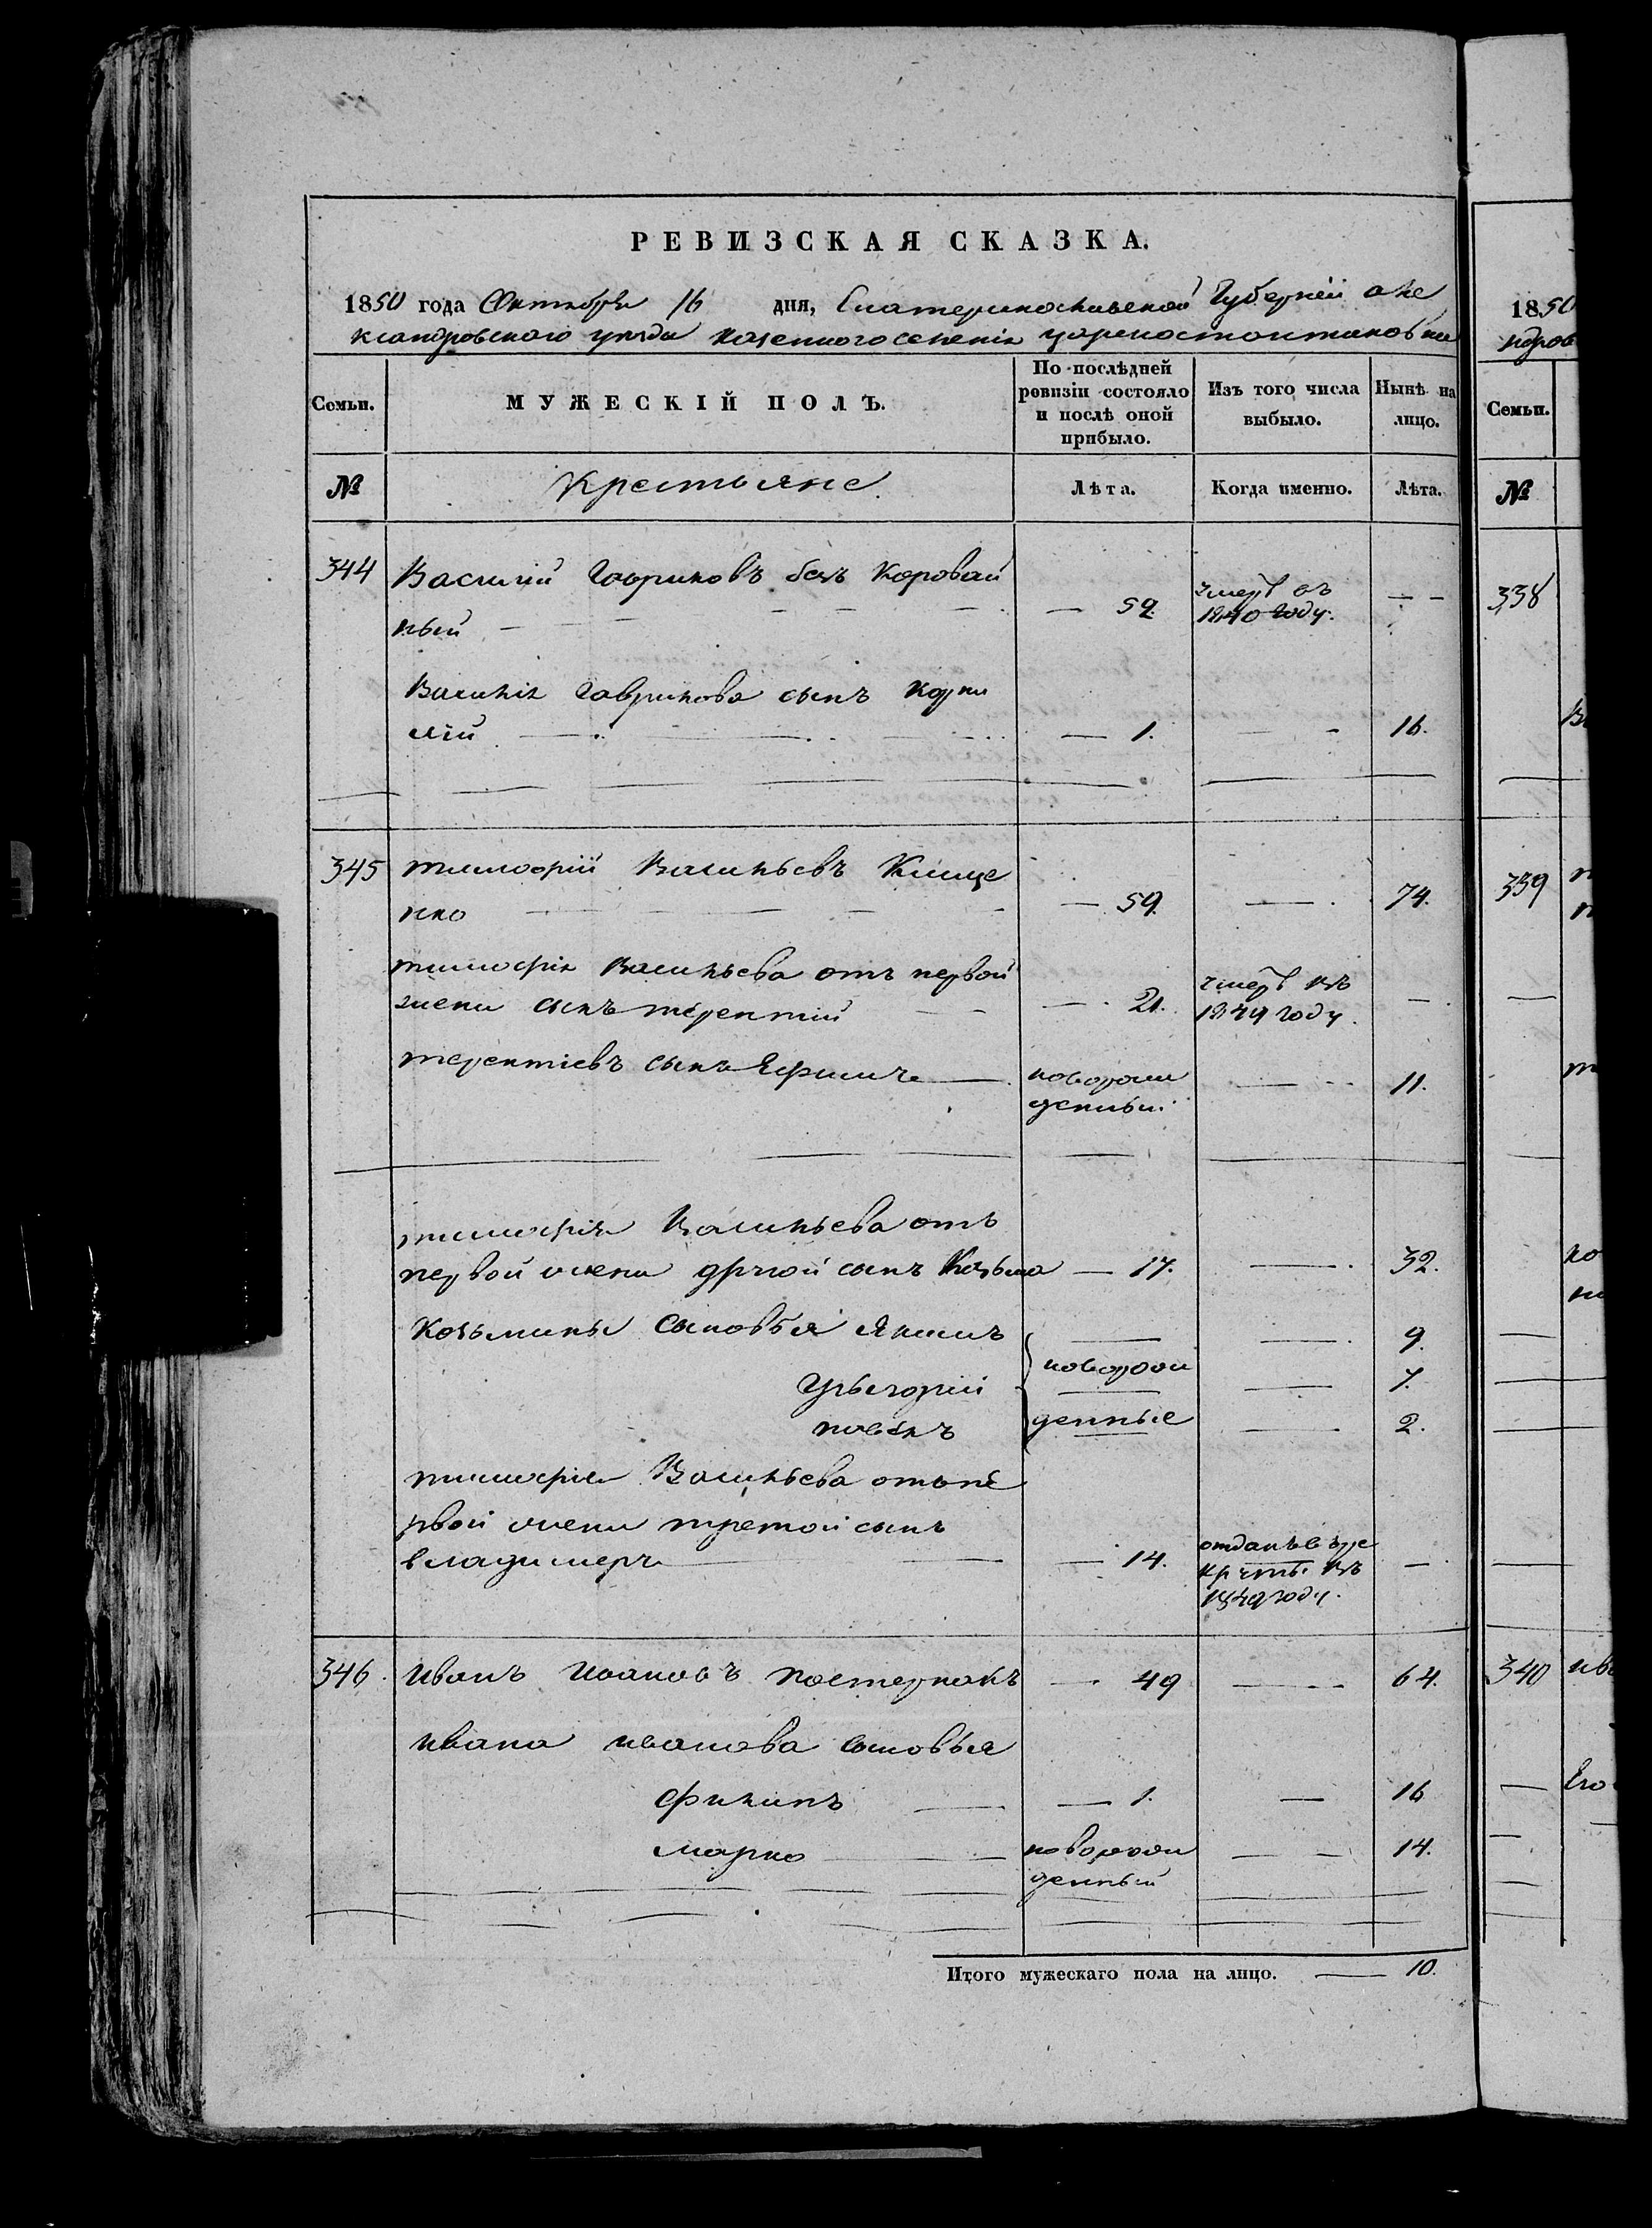 РЕВИЗСКАЯ СКАЗКА.
1850 года Октября 16 дня, Екатеринославской Губерній але
ксандровского уезда казенного селенія царе константиновки
Семьи.
МУЖЕСКІЙ ПОЛЪ.
По послѣдней
ревизіи состояло
и послѣ оной
прибыло.
Изъ того числа
выбыло.
Нынѣ на
лицо.
№
Крестьяне.
Лѣта.
Когда именно.
Лѣта.
344 Василій Гавриловъ Коровай
ный — 59. умерѣ въ 1840 году. —
Василія Гаврилова сынъ Корни
лій — 1. — 16.
345 тимофій Васильевъ Кище
нко — 59. — 74.
тимофія Васильева отъ первой
жени сынъ терентій — 21. умерѣ въ 1849 году. —
терентіевъ сынъ Яфимъ — новорожденный. — 11.
тимофія Васильева отъ
первой жени другой сынъ Козьма — 17. — 32.
Козьмины сыновья Якимъ — 9.
Грыгорій новорож — 7.
павелъ денные — 2.
тимофія Васильева отъ пе
рвой жени третой сынъ
владимеръ — 14. отданъ въ ре
круты въ
1849 году. —
346. иванъ ивановъ пастернакъ — 49 — 64.
ивана иванова сыновья
филипъ — 1. — 16
марко — новорож
денный — 14.
Итого мужескаго пола на лицо. — 10.
1850
ндров
Семьи.
№
338
339
340 ива
Его